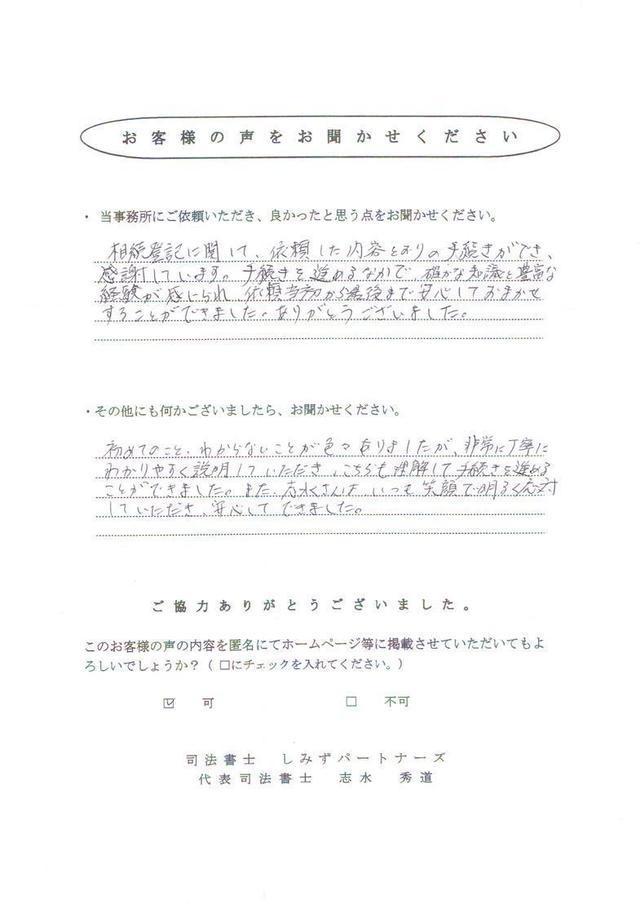 お客様の声をお聞かせください
・ 当事務所にご依頼いただき、良かったと思う点をお聞かせください。
相続登記に関して、依頼した内容とおりの手続きができ、
感謝しています。手続きを進めるなかで、確かな知識と豊富な
経験が感じられ、依頼当初から最後まで安心しておまかせ
することができました。ありがとうございました。
・その他にも何かございましたら、お聞かせください。
初めてのこと、わからないことが色々ありましたが、非常に丁寧に
わかりやすく説明していただき、こちらも理解して手続きを進める
ことができました。また、志水さんは、いつも笑顔で明るく応対
していただき、安心してできました。
ご協力ありがとうございました。
このお客様の声の内容を匿名にてホームページ等に掲載させていただいてもよ
ろしいでしょうか？（ □にチェックを入れてください。）
☑ 可 □ 不可
司法書士 しみずパートナーズ
代表司法書士 志水 秀道